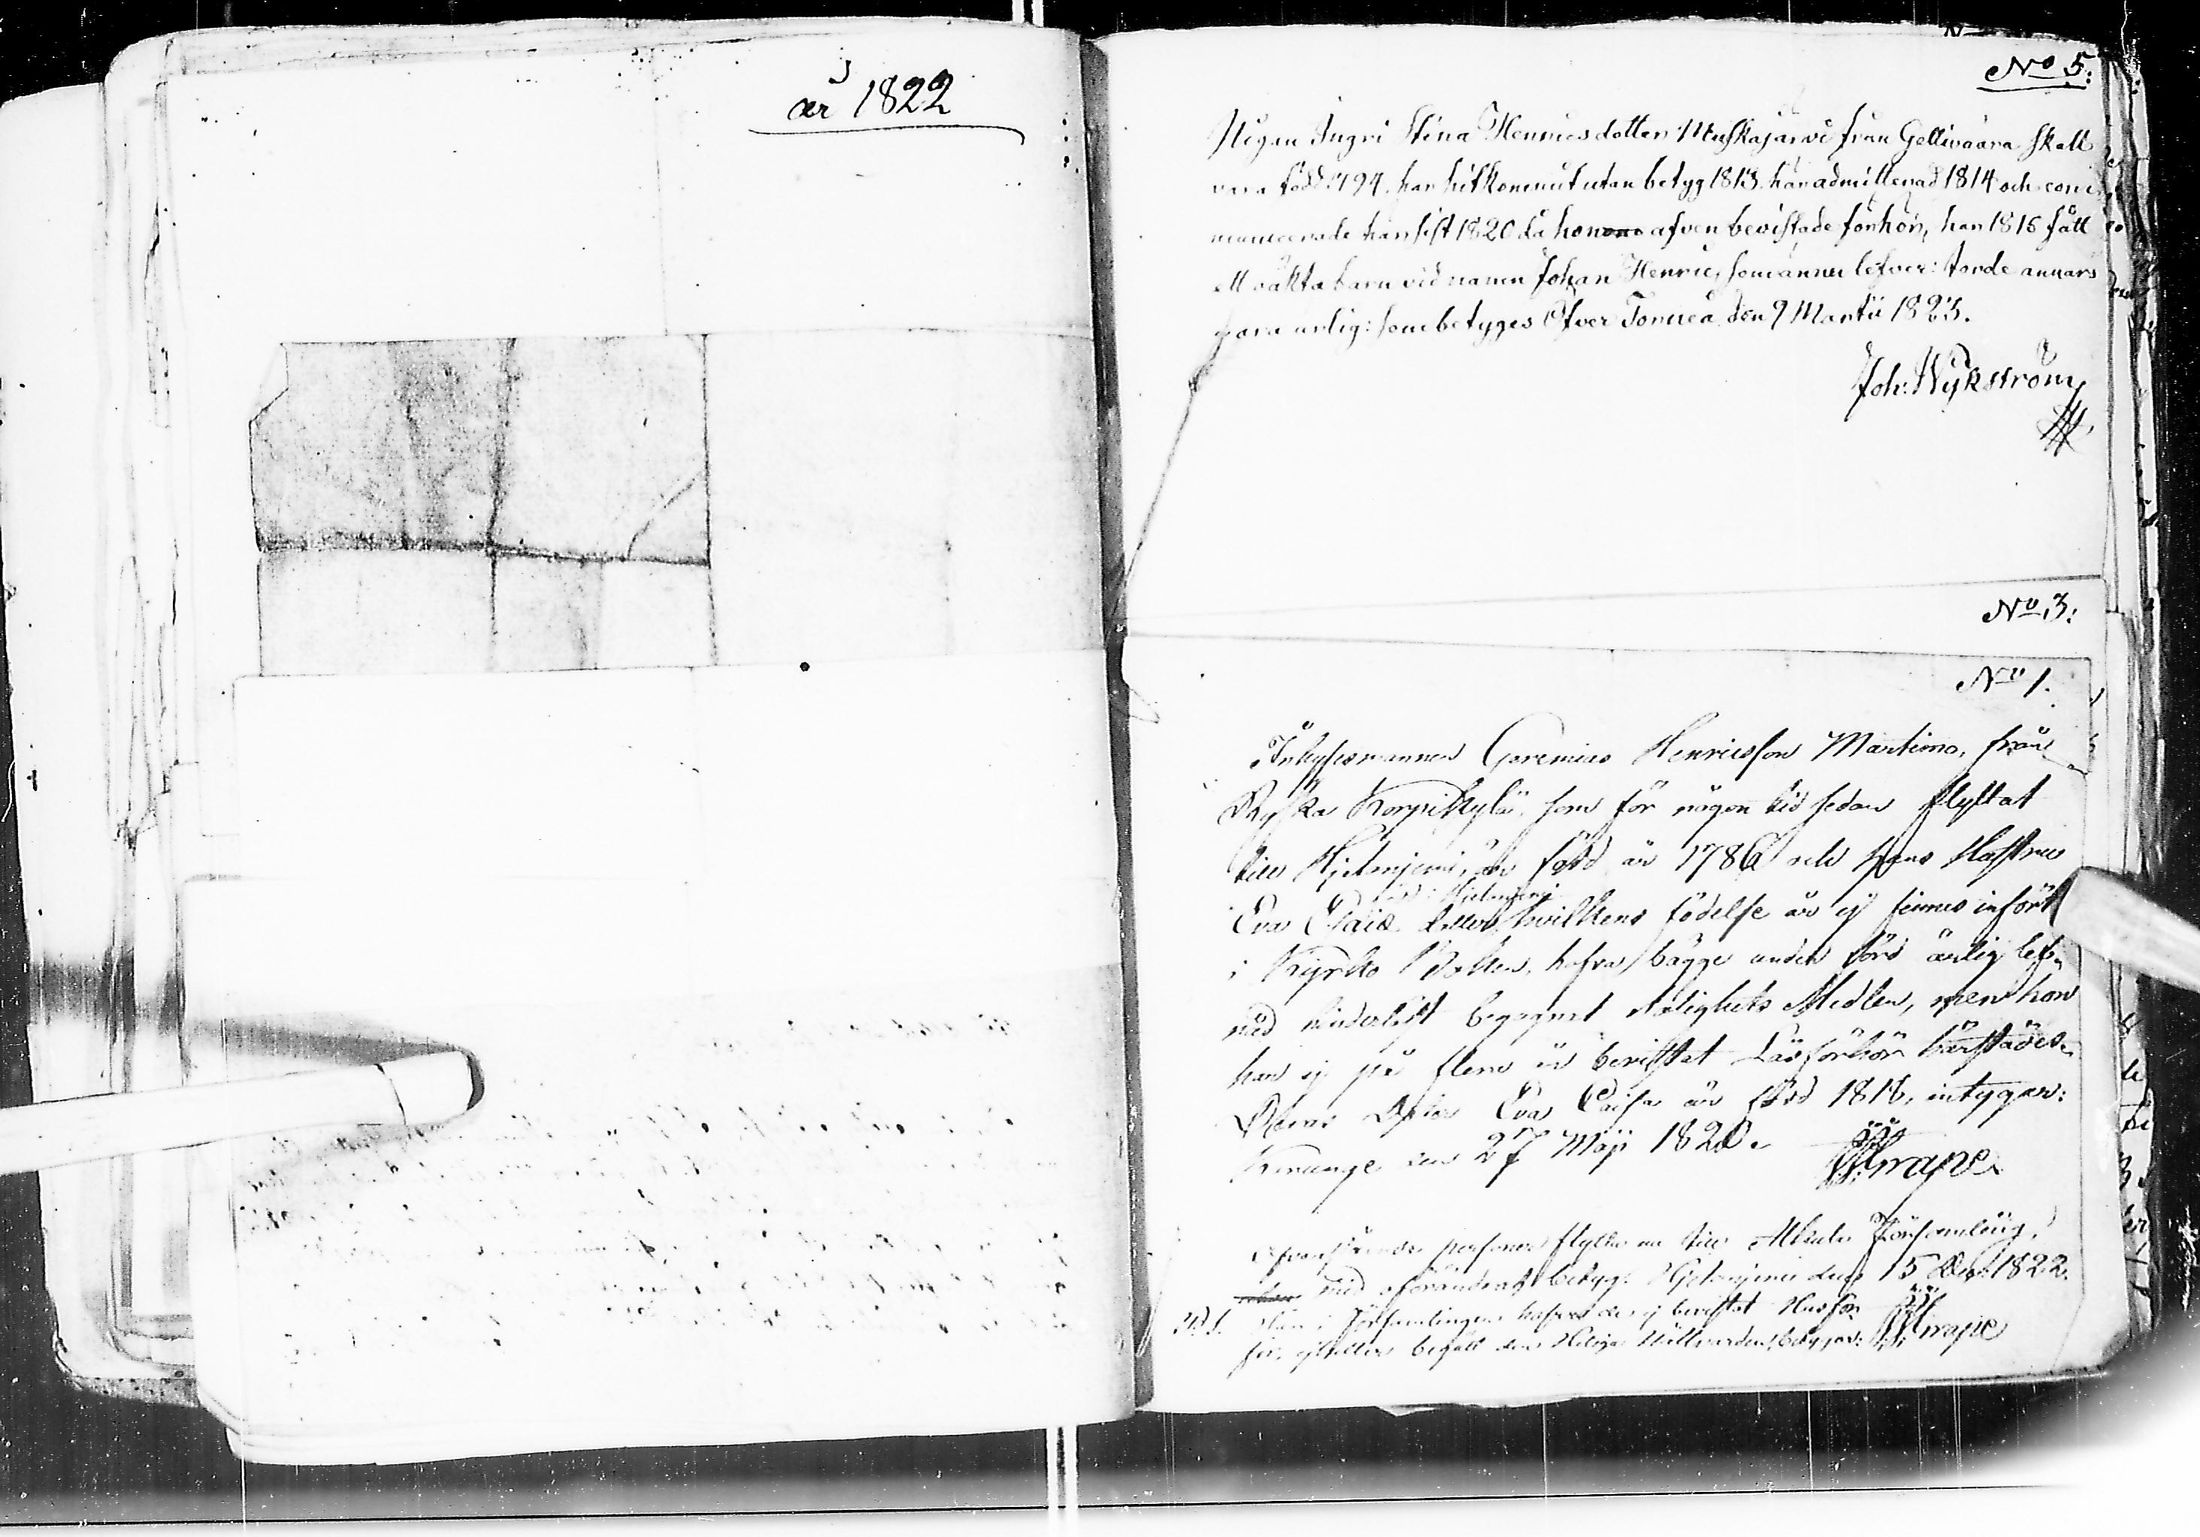 år 1822
No 5:
Pigan Ingri Stina Henricsdotter Muskajärvi från Gellivaara skall
vara född 1794. har hitkommit utan betyg 1813. här admitterad 1814 och com
municerade här sist 1820 då hon äfven bevistade förhör, har 1816 fått
ett oäkta barn vid namn Johan Henric, som ännu lefver: torde annars
vara ärlig: som betyges Öfver Torneå den 9 Martii 1823.
Joh: Wykström
No 3:
No 1.
Inhysesmannen Henricsson Martimo, från
Ryska Korpikylä, som för någon tid sedan flyttat
till Hjetanjemi, är född år 1786 och hans Hustru
Eva Caisa hvilkens födelse år ej finnes infördt
i Kyrko Boken, hafva bägge under förd ärlig lef-
nad begagnat Salighets Medlen, men hon
har ej på flere år bevistat Läsförhör härstädes.
Deras Dotter Eva Caisa är född 1818, intygar:
den 27 Maji 1820.
Grape
personer flytta nu till Församling,
med oförändradt betyg: Hjetanjemi den 15 1822.
i Församlingen hafva de ej bevistat Husför
hör, ej heller begått den Heliga Nattvarden, betygar: Grape